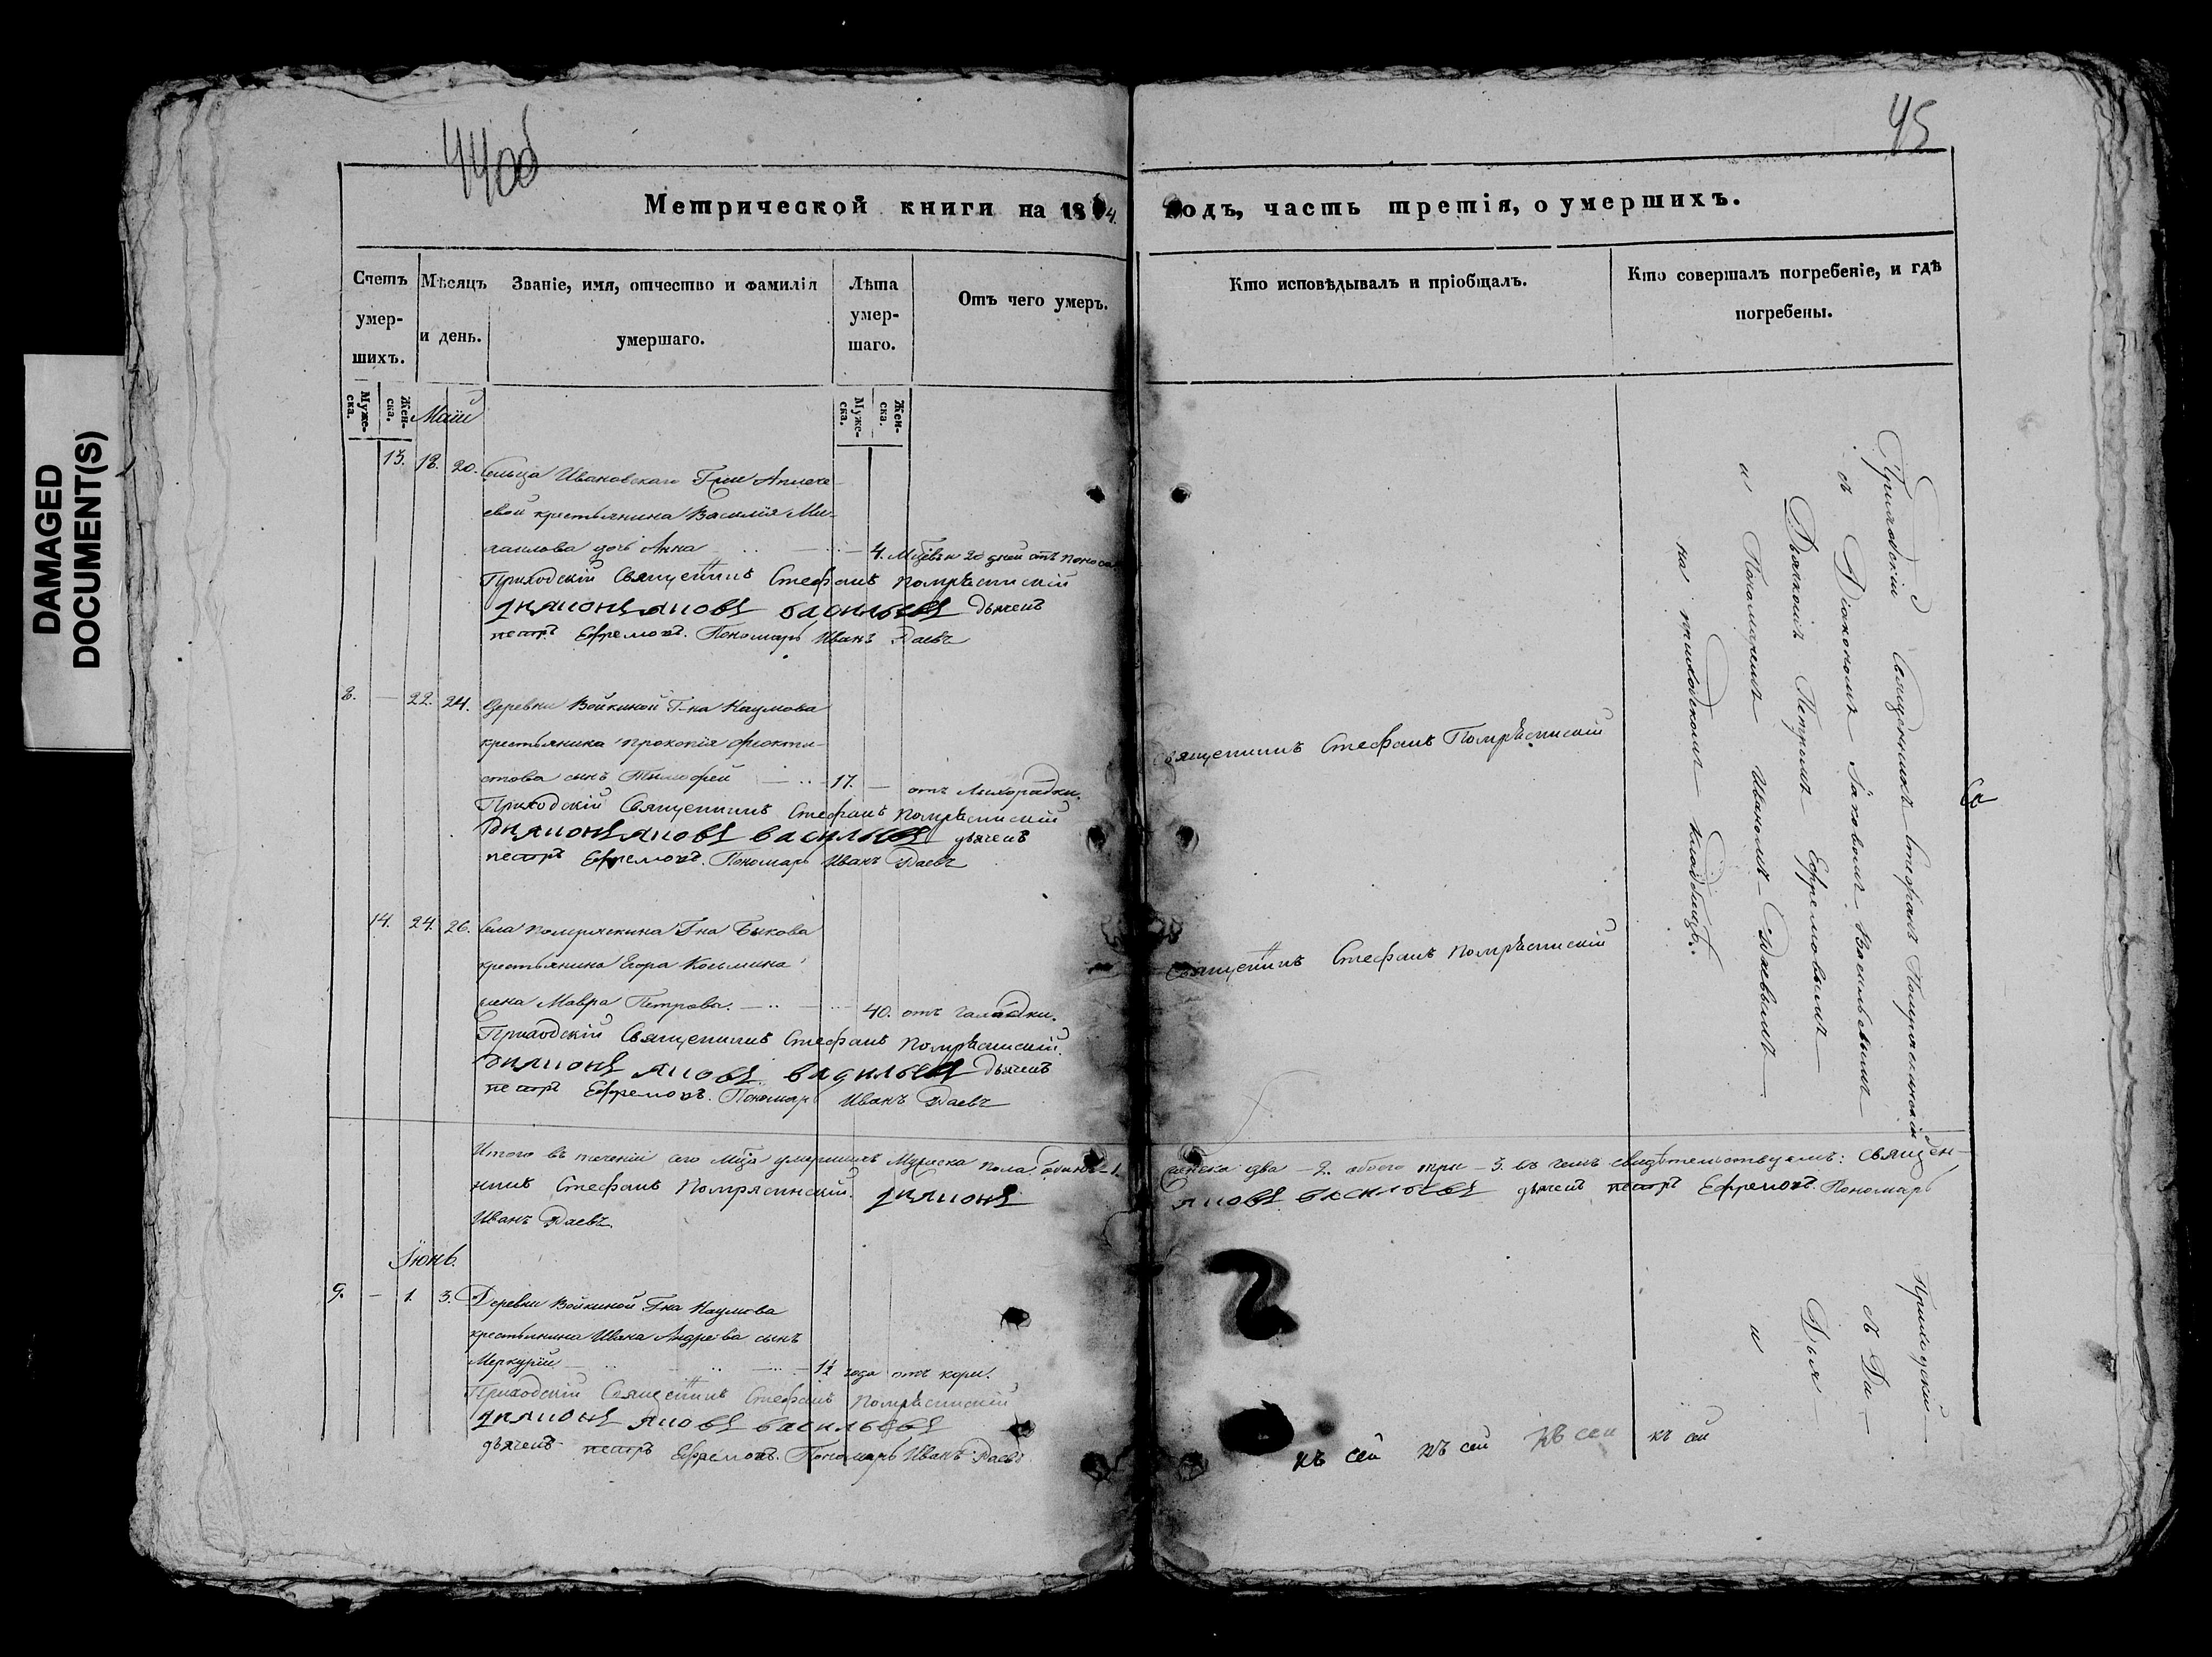 DAMAGED
DOCUMENT(S)
44об
45
Метрической книги на 18 4. годъ, часть третія, о умершихъ.
Счетъ умер-шихъ.
Мѣсяцъ и день.
Званіе, имя, отчество и фамилія умершаго.
Лѣта умер-шаго.
Отъ чего умеръ.
Кто исповѣдывалъ и пріобщалъ.
Кто совершалъ погребеніе, и гдѣ погребены.
Муже-ска.
Жен-ска.
Муже-ска.
Жен-ска.
Маій
13. 18. 20. Сельца Ивановскаго Гжи
крестьянина Василія Ми-
хаилова дочь Анна 4. Мцевъ и 20 дней отъ поноса
Приходскій Священникъ Стефанъ Помряскинскій
Диаконъ Яковъ Васильевъ дьячекъ
петръ Ефремовъ. Пономарь Иванъ
8. — 22. 24. Деревни Войкиной Г-на Наумова
крестьянина Прокопія Феокти-
стова сынъ Тимофей 17. — отъ лихорадки.
Священникъ Стефанъ Помряскинскій
Приходскій Священникъ Стефанъ Помряскинскій
Диаконъ Яковъ Васильевъ дьячекъ
петръ Ефремовъ. Пономарь Иванъ
14. 24. 26. Села Помряскина Г-на Быкова
крестьянина Егора Козьмина
жена Мавра Петрова. 40. отъ
Священникъ Стефанъ Помряскинскій
Приходскій Священникъ Стефанъ Помряскинскій
Диаконъ Яковъ Васильевъ дьячекъ
петръ Ефремовъ. Пономарь Иванъ
Приходскій Священникъ Стефанъ Помряскинскій
съ Діакономъ Іаковомъ Васильевымъ
Дьячкомъ Петромъ Ефремовымъ
и Пономаремъ Иваномъ
на приходскомъ кладбищѣ.
Итого въ теченіи сего мца умершихъ Мужеска пола одинъ - 1. женска два - 2. обоего три - 3. въ чемъ свидѣтельствуемъ: Священ-
никъ Стефанъ Помряскинскій. Диаконъ Яковъ Васильевъ дьячекъ петръ Ефремовъ. Пономарь
Иванъ
Іюнь.
9. — 1. 3. Деревни Войкиной Г-на Наумова
крестьянина Ивана Андреева сынъ
Меркурій 1½ года отъ кори.
Приходскій Священникъ Стефанъ Помряскинскій
Диаконъ Яковъ Васильевъ
дьячекъ петръ Ефремовъ. Пономарь Иванъ
Приходскій
съ Ди-
Дьяч-
и
къ сей къ сей къ сей къ сей